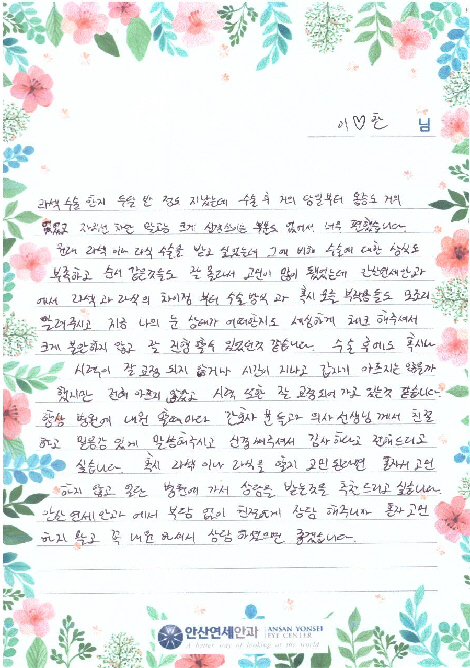 이♡찬 님
라섹 수술 한지 두달 반 정도 지났는데 수술 후 거의 당일부터 통증도 거의
없었고 자외선 차단 말고는 크게 신경쓰이는 부분도 없어서 너무 편했습니다.
원래 라섹 이나 라식 수술을 받고 싶었는데 그에 비해 수술에 대한 상식도
부족하고 순서 같은것들도 잘 몰라서 고민이 많이 됐었는데 안산연세안과
에서 라섹과 라식의 차이점 부터 수술방식 과 혹시 모를 부작용들도 모조리
알려주시고 지금 나의 눈 상태가 어떠한지도 세심하게 체크 해주셔서
크게 불안하지 않고 잘 진행 할수 있었던것 같습니다. 수술 후에도 혹시나
시력이 잘 교정 되지 않거나 시간이 지나고 갑자기 아프지는 않을까
했지만 전혀 아프지 않았고 시력 또한 잘 교정되어 가고 있는것 같습니다.
항상 병원에 내원 할때마다 간호사 분들과 의사 선생님 께서 친절
하고 믿음감 있게 말씀해주시고 신경써주셔서 감사하다고 전해드리고
싶습니다. 혹시 라섹 이나 라식을 할지 고민 된다면 혼자서 고민
하지 않고 일단 병원에 가서 상담을 받는것을 추천드리고 싶습니다.
안산 연세 안과 에서 부담 없이 친절하게 상담 해주니까 혼자 고민
하지 말고 꼭 내원 하셔서 상담 하셨으면 좋겠습니다.
안산연세안과 ANSAN YONSEI EYE CENTER
A better way of looking at the world